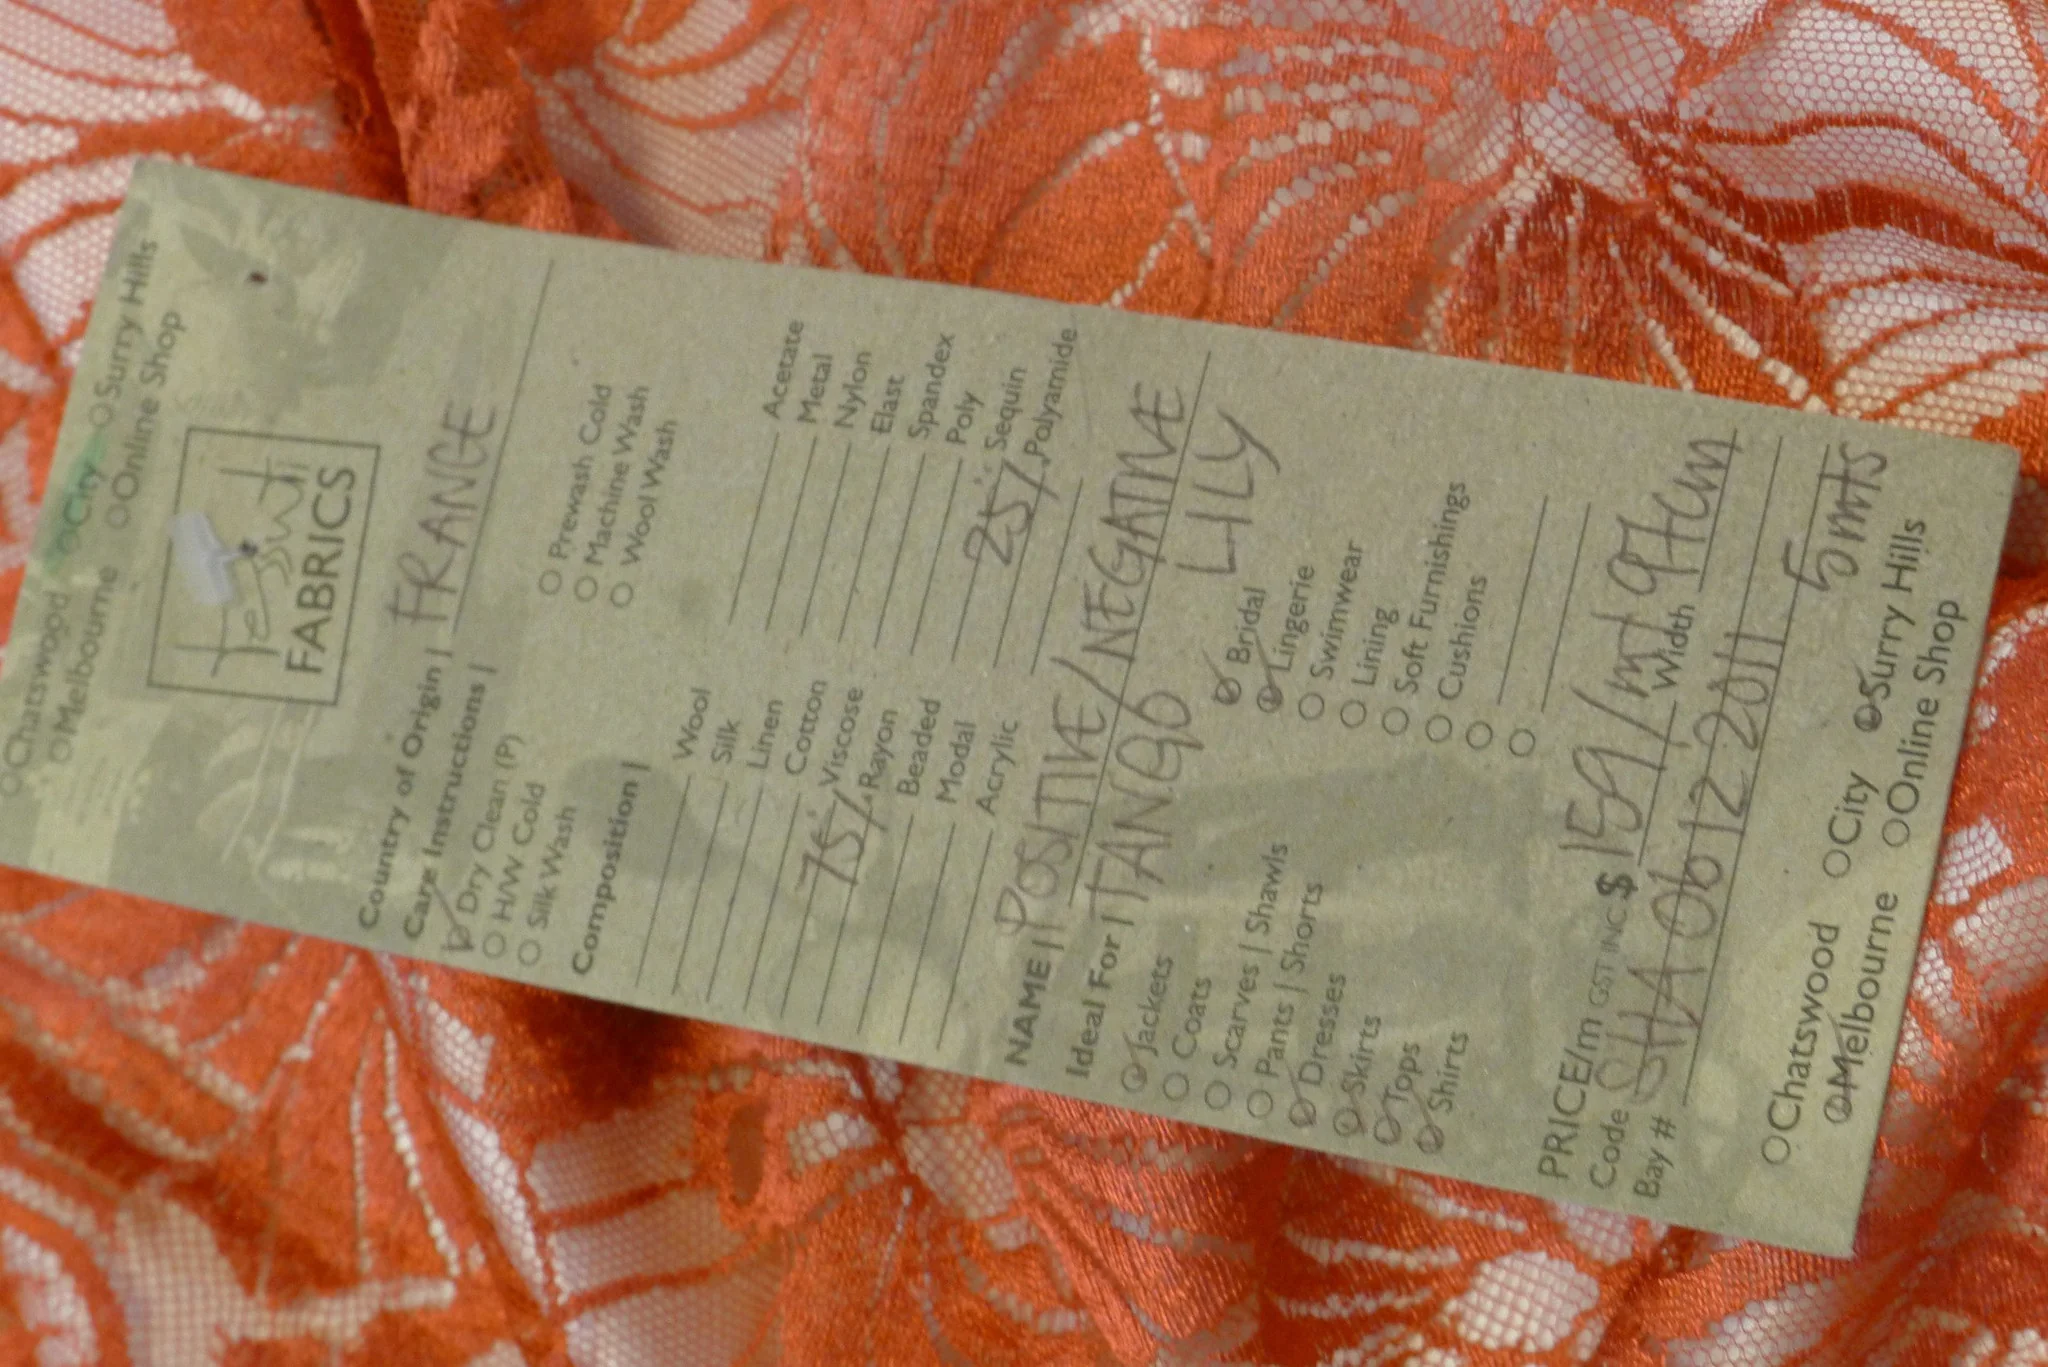 Chatswood City Surry Hills
Melbourne Online Shop
Tessuti
FABRICS
Country of Origin | FRANCE
Care Instructions |
Dry Clean (P) Prewash Cold
H/W Cold Machine Wash
Silk Wash Wool Wash
Composition |
Wool Acetate
Silk Metal
Linen Nylon
Cotton Elast
75% Viscose Spandex
Rayon Poly
Beaded Sequin
Modal 25% Polyamide
Acrylic
NAME | POSITIVE/NEGATIVE
Ideal For | TANGO LILY
Jackets Bridal
Coats Lingerie
Scarves | Shawls Swimwear
Pants | Shorts Lining
Dresses Soft Furnishings
Skirts Cushions
Tops
Shirts
PRICE/m GST INC $159/mt Width 97cm
Code SHA 06 12 2011
Bay # 5mts
Chatswood City Surry Hills
Melbourne Online Shop